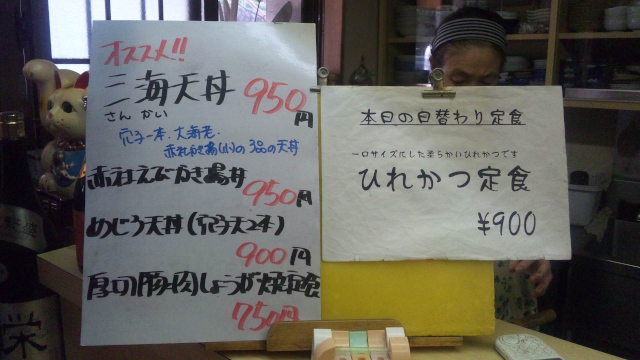 オススメ!!
三海天丼 950円
さんかい
穴子一本、大海老、
赤ねぎかき揚(小)の3品の天丼
かき揚丼
950円
めじろ天丼(穴子天2本)
900円
厚切豚肉しょうが焼定食
750円
本日の日替わり定食
一口サイズにした柔らかいひれかつです
ひれかつ定食
¥900
栄